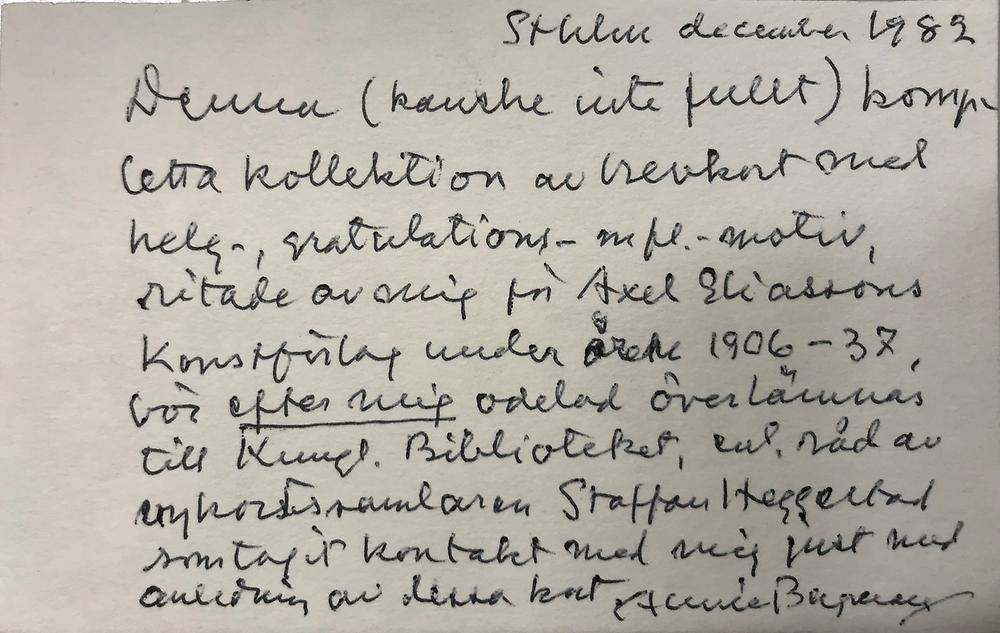 Sthlm december 1982
Denna (kanske inte fullt) komp-
letta kollektion av brevkort med
helg-, gratulations- m fl.-motiv,
ritade av mig för Axel Eliassons
Konstförlag under åren 1906-37,
bör efter mig odelad överlämnas
till Kungl. Biblioteket, enl. råd av
vykortssamlaren Staffan
som tagit kontakt med mig just med
anledning av dessa kort